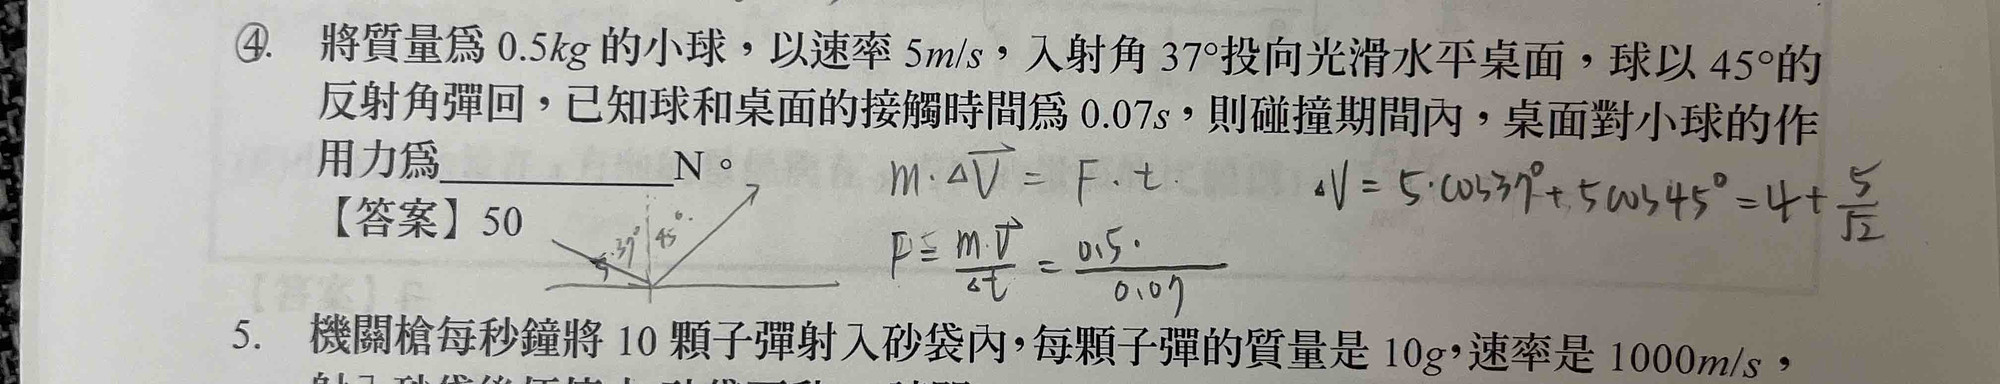 ④. 將質量爲 0.5kg 的小球，以速率 5m/s，入射角 37°投向光滑水平桌面，球以 45°的
反射角彈回，已知球和桌面的接觸時間爲 0.07s，則碰撞期間內，桌面對小球的作
用力爲____________N。
【答案】50
37° 45°
m·△V⃗ = F·t.
F = m·V⃗/△t = 0.5·/0.07
△V = 5·cos37°+5cos45° = 4+5/√2
5. 機關槍每秒鐘將 10 顆子彈射入砂袋內，每顆子彈的質量是 10g，速率是 1000m/s，